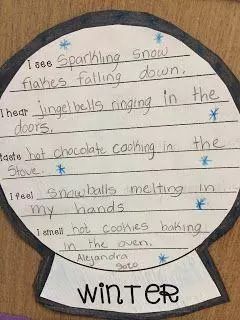 I see sparkling snow
flakes falling down.
I hear jingelbells ringing in the
doors.
taste hot chocolate cooking in the
stove.
I feel snowballs melting in
my hands
I smell hot cookies baking
in the oven.
Alejandra
Soto
WINTER